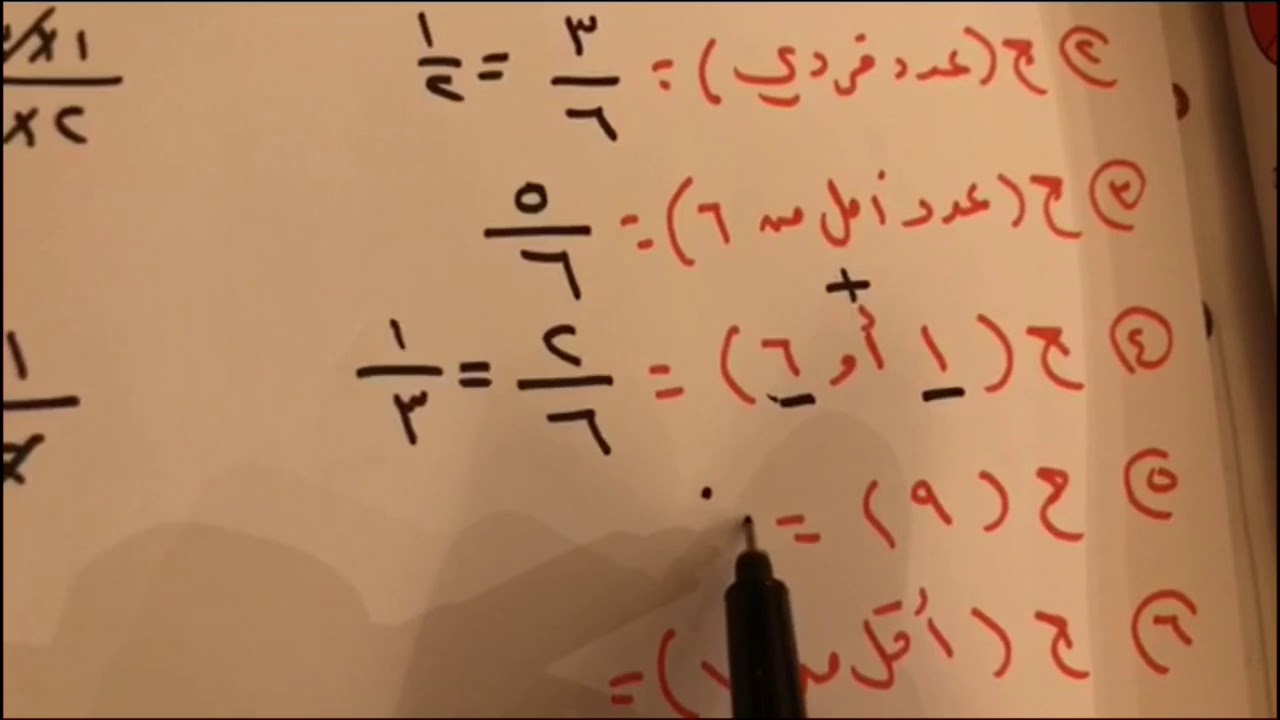 ٢ ح (عدد فردي) = ٣/٦ = ١/٢
٣ ح (عدد أقل من ٦) = ٥/٦
+
٤ ح (١ أو ٦) = ٢/٦ = ١/٣
٥ ح (٩) = ٠
٦ ح (أقل من ١) =